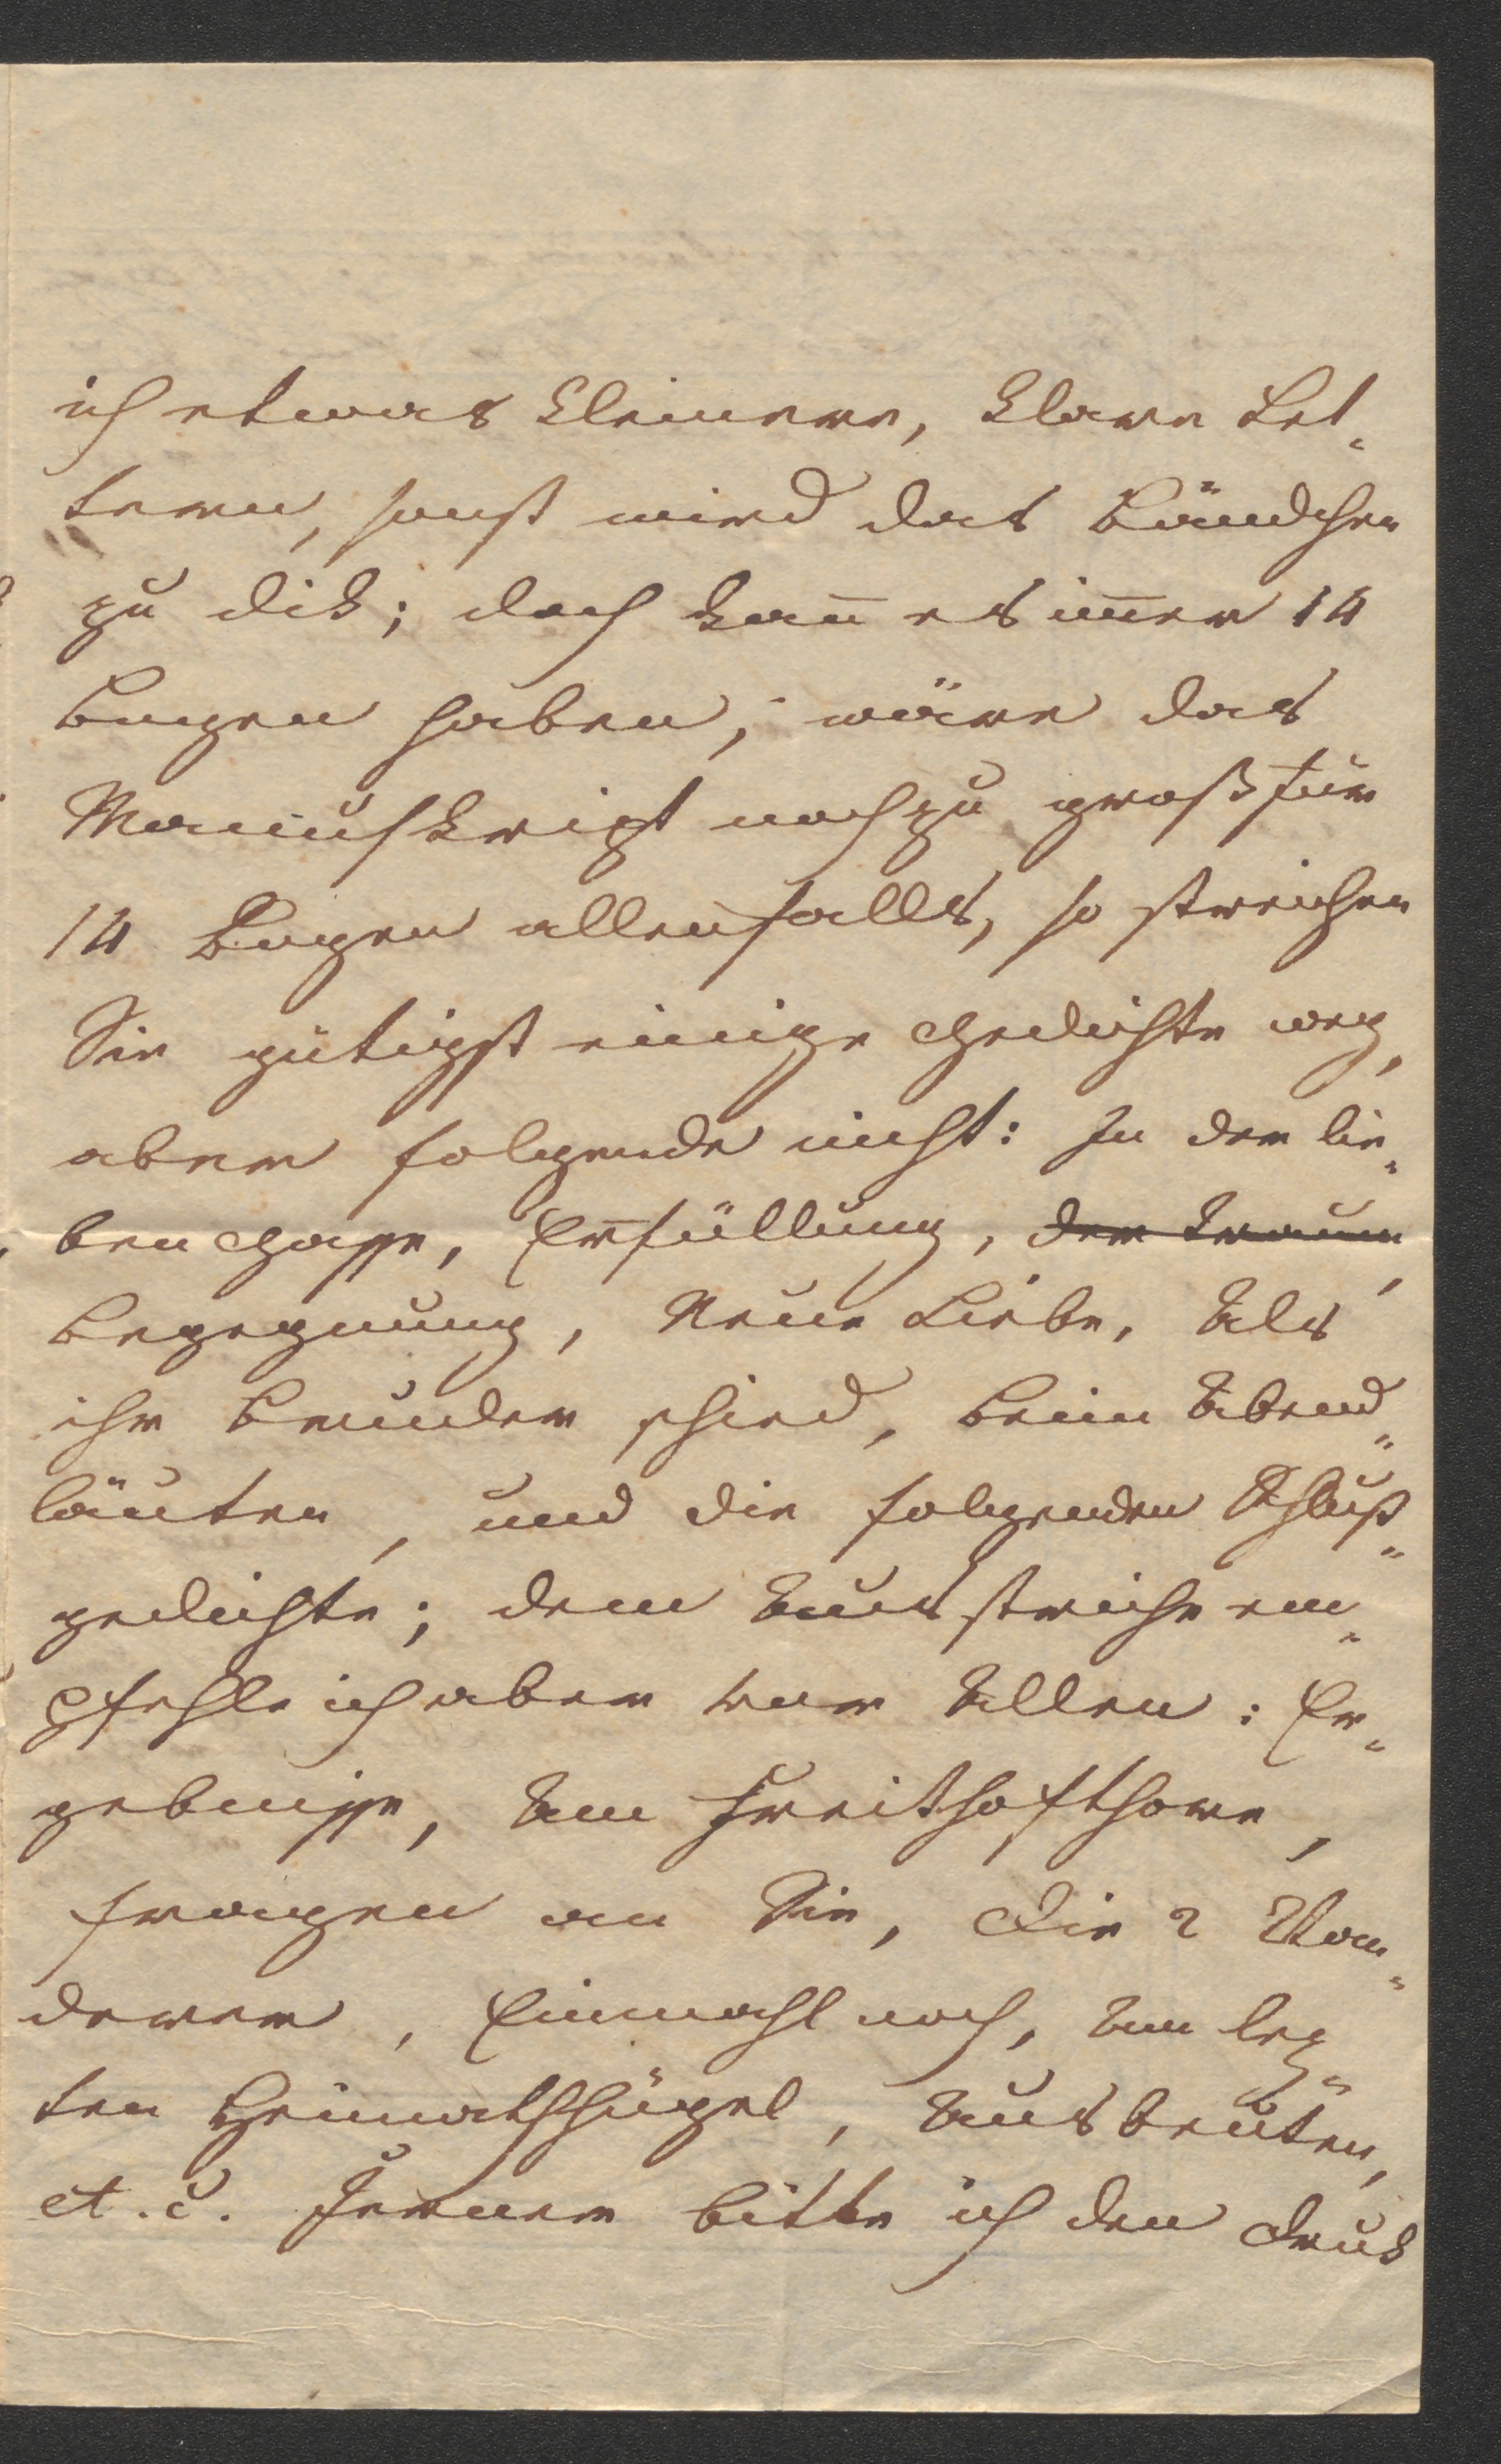 ich etwas kleinere, klare Let-
tern, sonst wird das Bändchen
zu dik; doch kan̅ es im̅er 14
Bogen haben; wäre das
Manuskript noch zu groß für
14 Bogen allenfalls, so streichen
Sie gütigst einige Gedichte weg,
aber folgende nicht: In der lie-
ben Gasse, Erfüllung, der Traum,
Begegnung, Neue Liebe, Als
ihr Bruder schied, Beim Abend-
läuten, und die folgenden Schluß-
gedichte; dem Ausstriche em-
pfehle ich aber vor Allen: Er-
gebnisse, Am Freithofthore,
Fragen an Sie, Die 2 Wan-
derer, Einmahl noch, Am lez-
ten Heimathhügel, Ausbeuten,
et. c. Ferner bitte ich den Druk